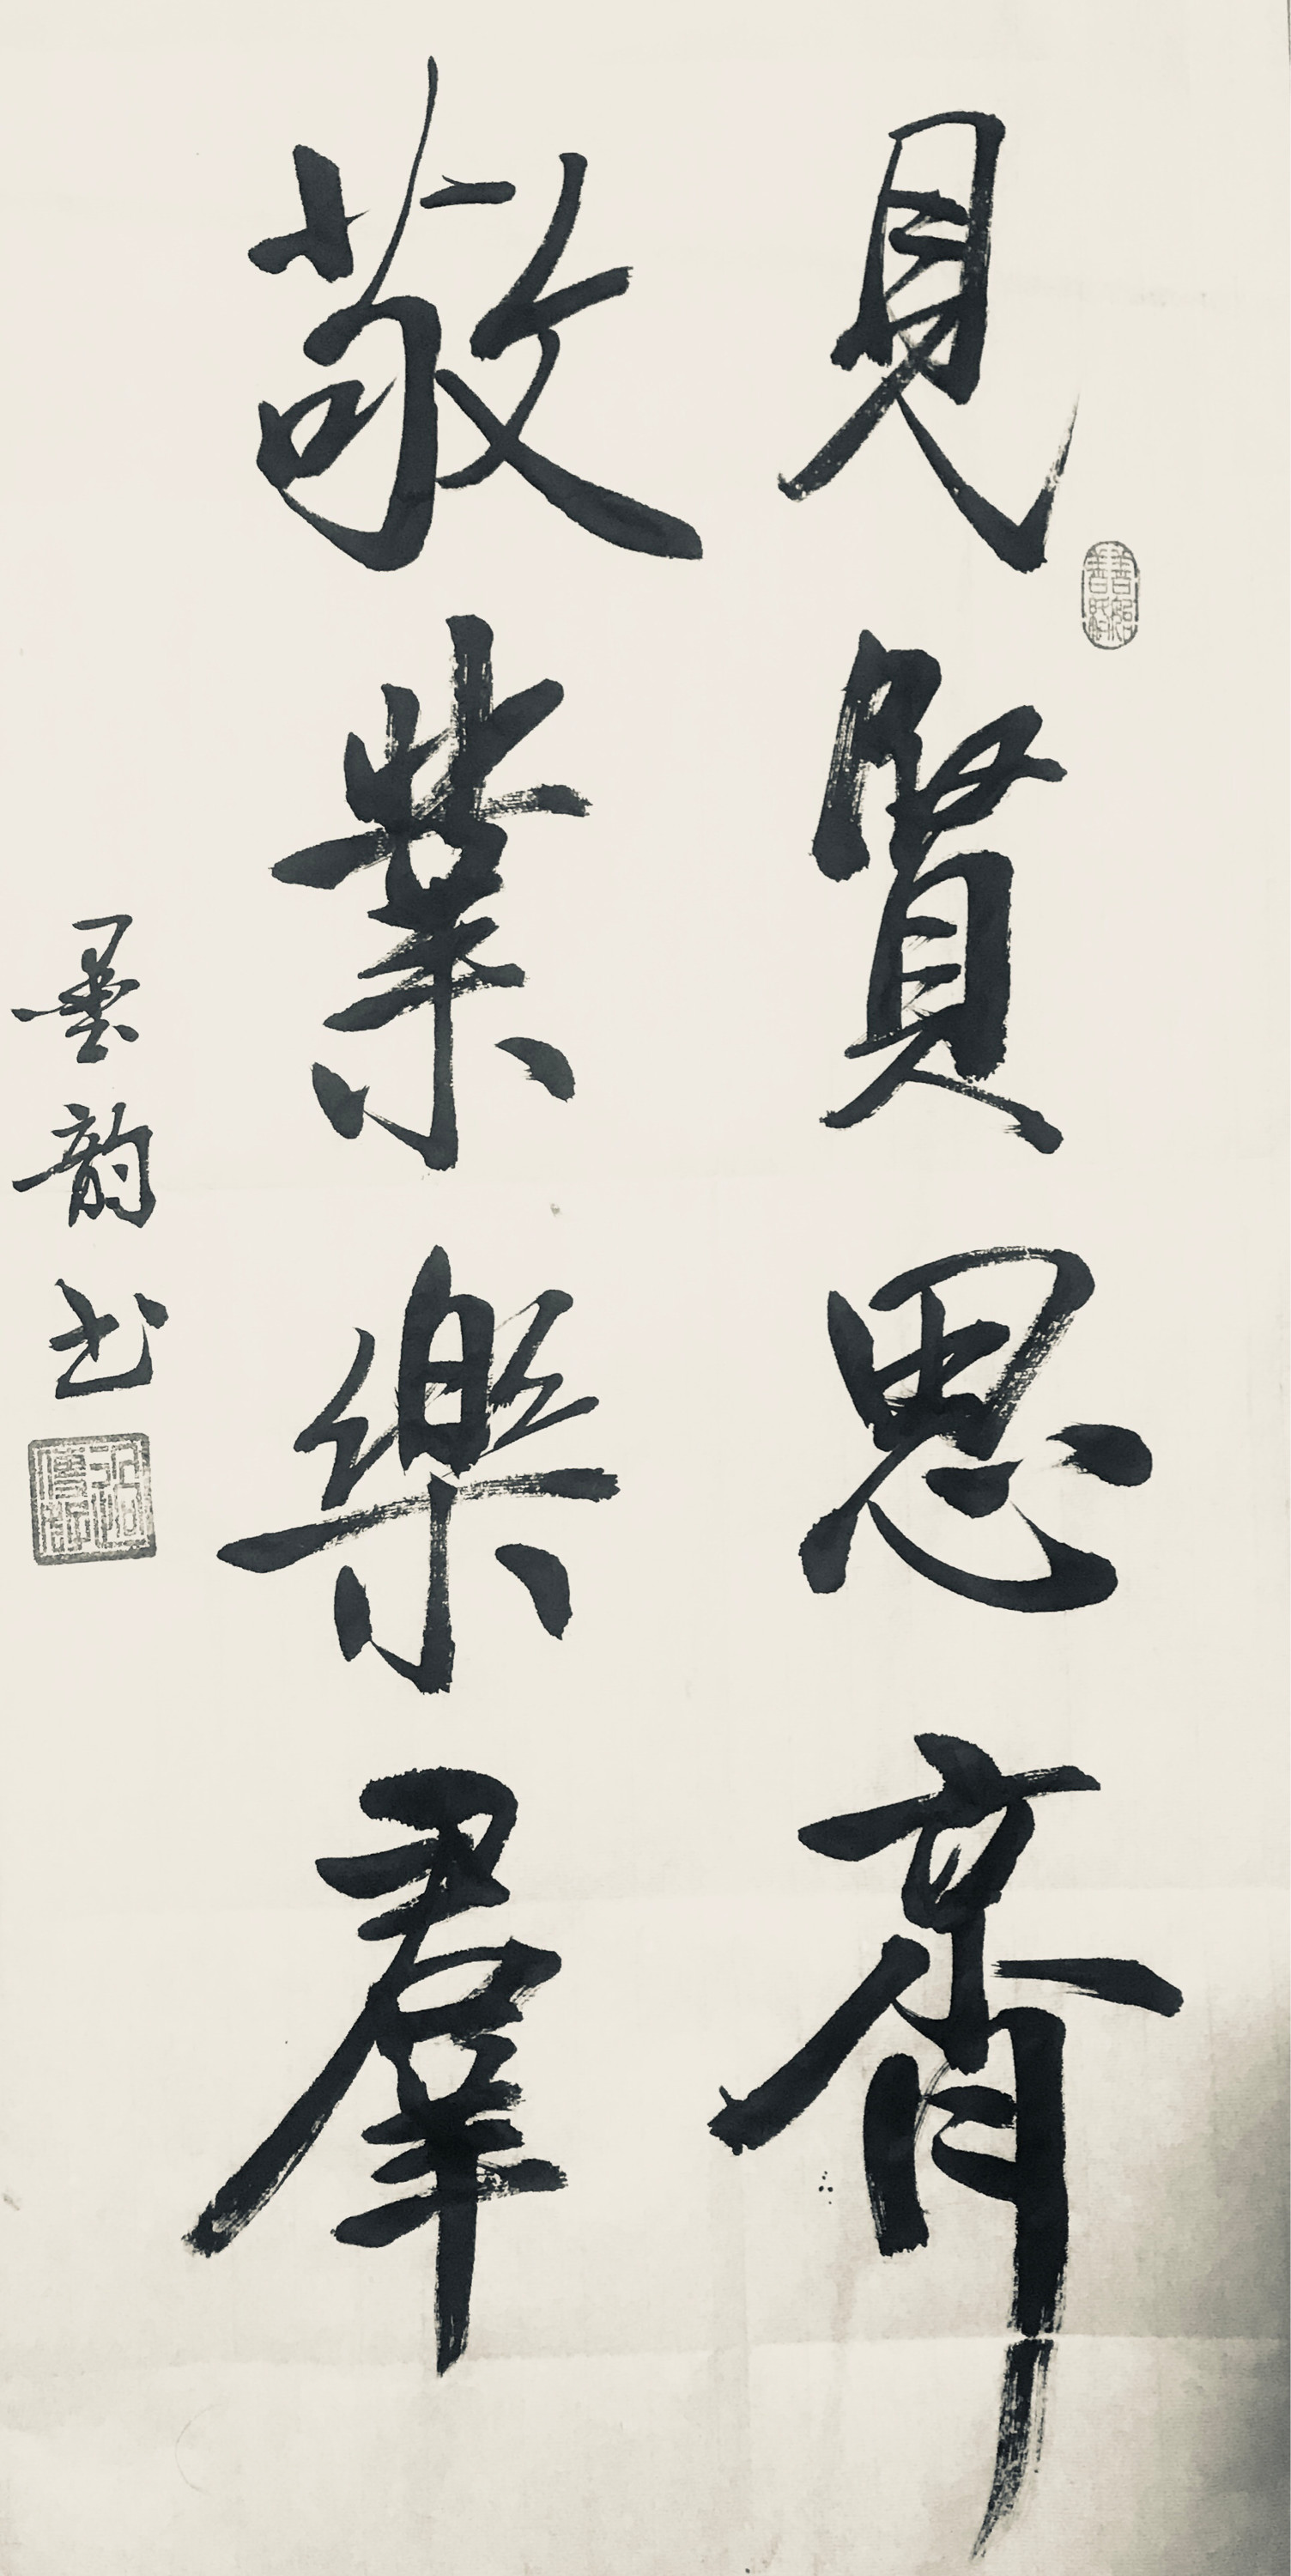 見賢思齊
敬業樂羣
墨韵书